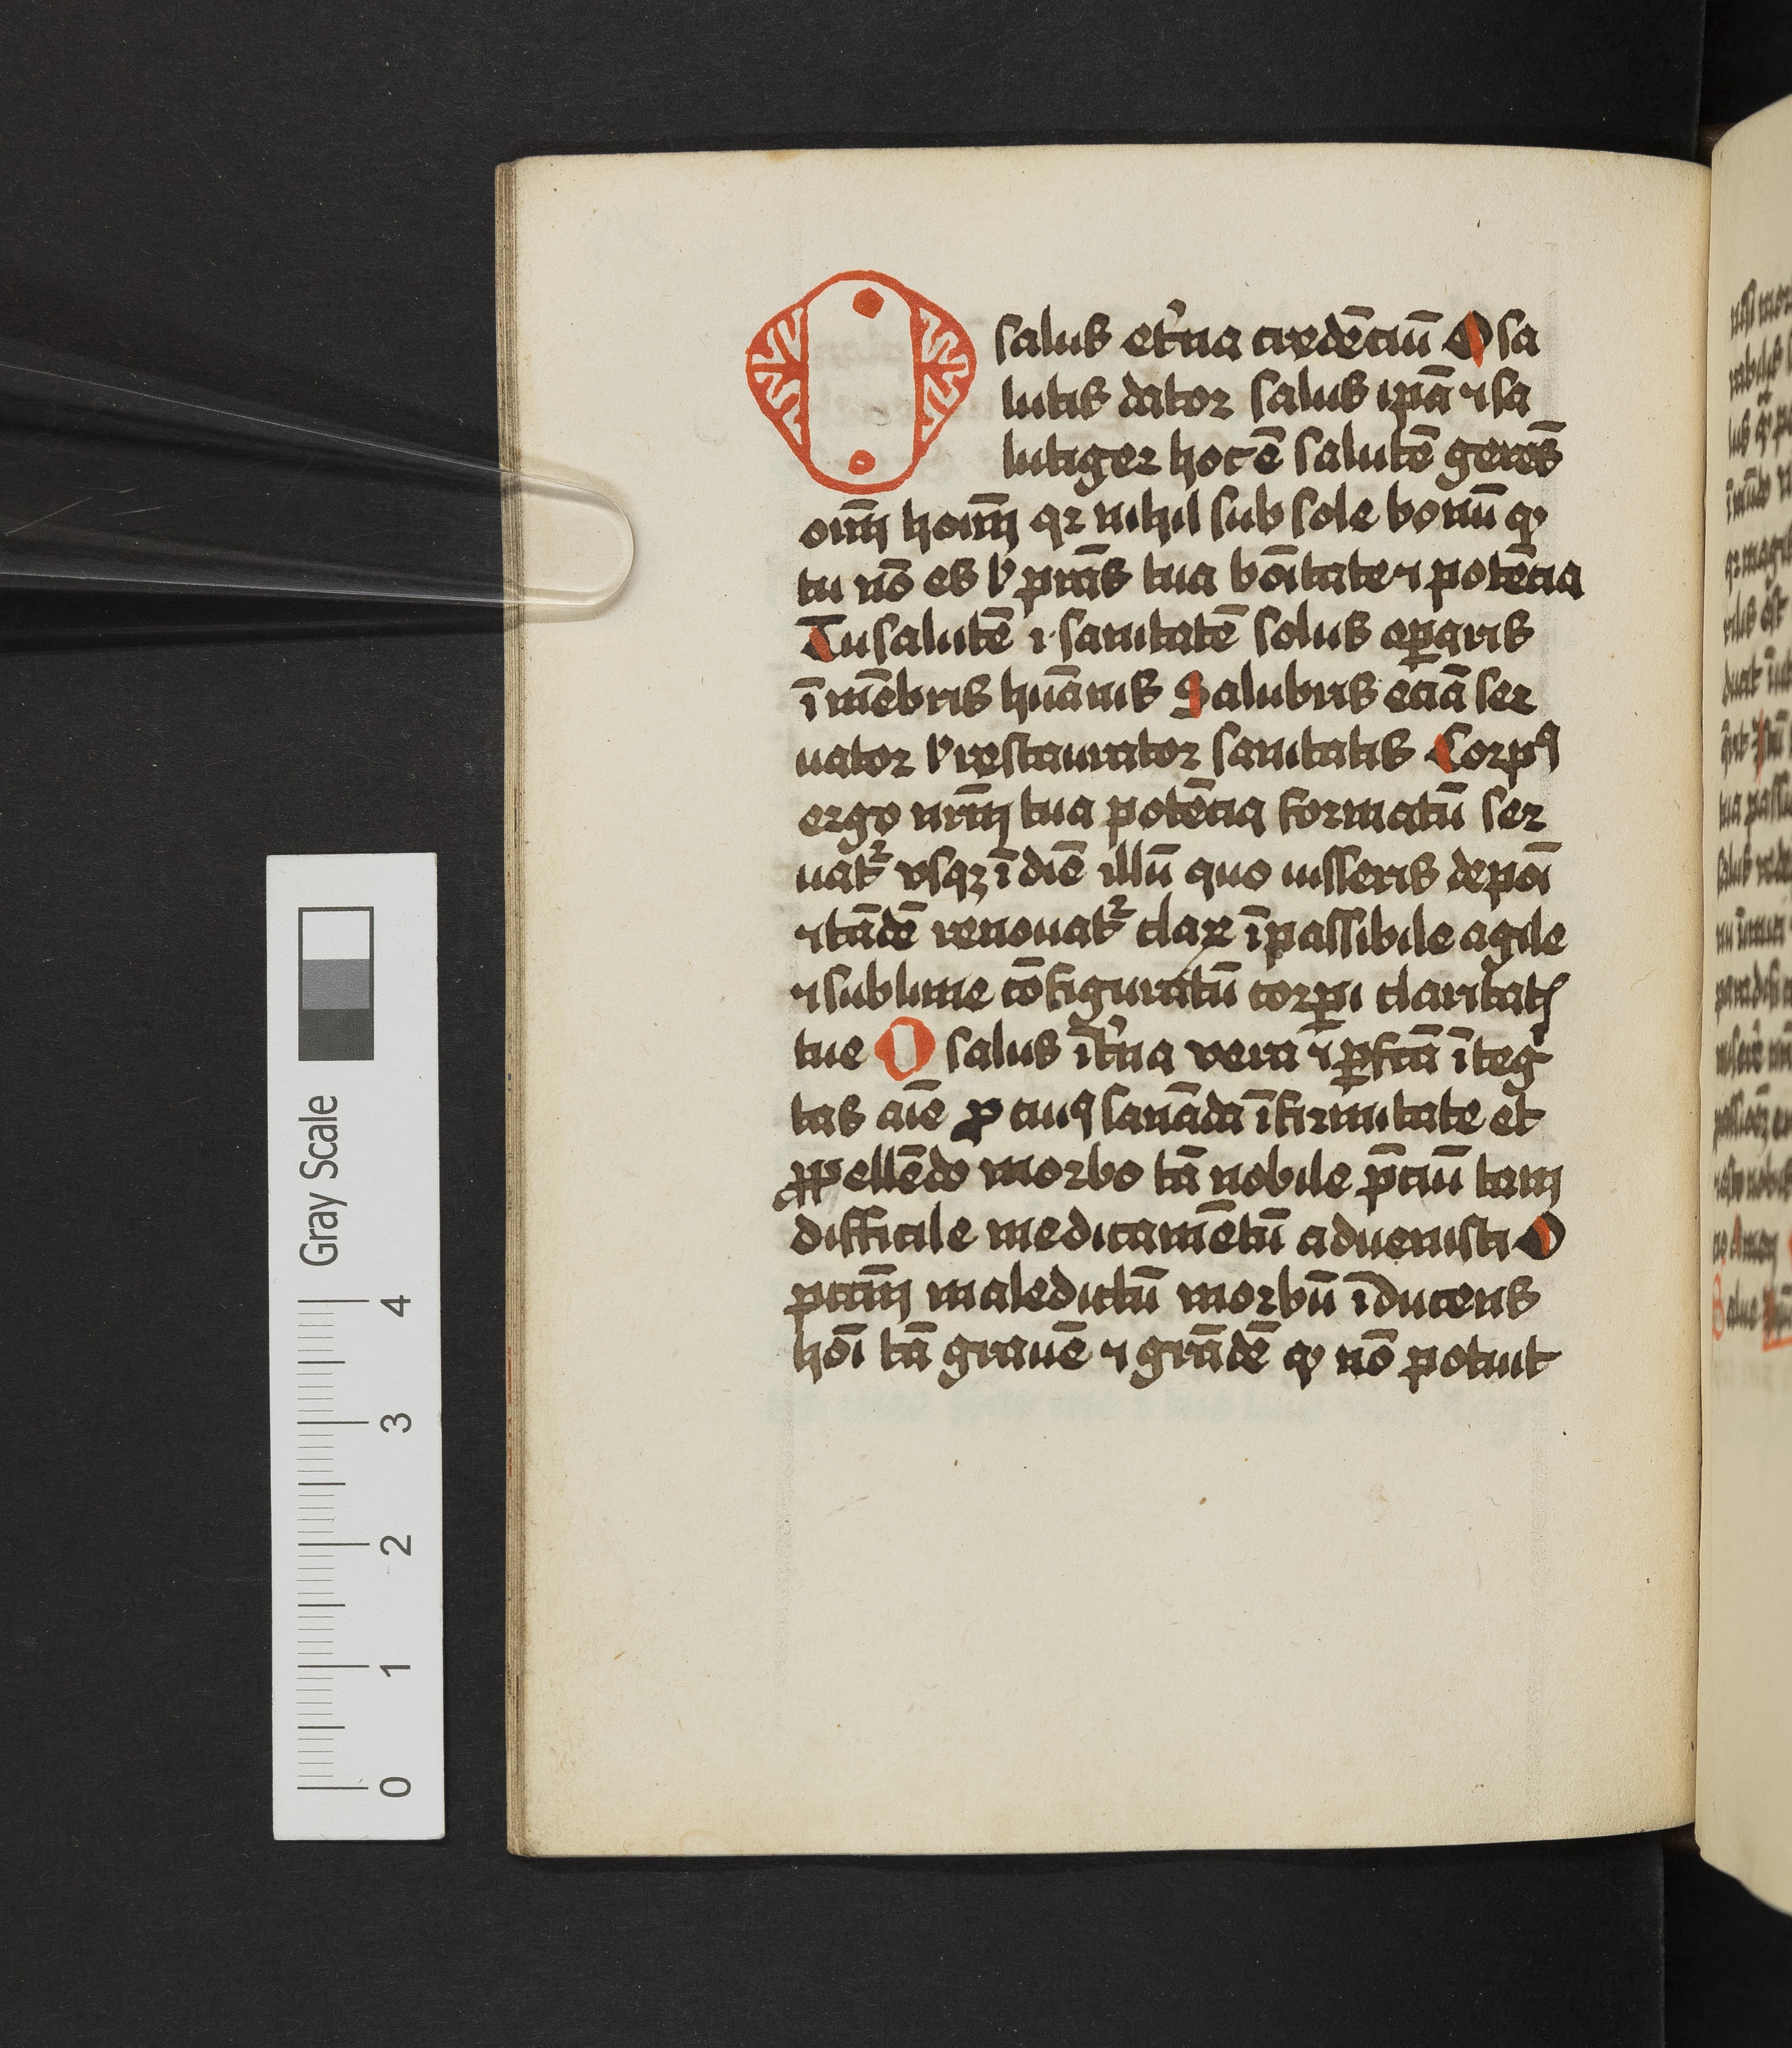 O salus et'na credēciū O sa
lutis dator salus ip̄a ⁊ sa
lutiger hoc ē salutē gerēs
oīm hoīm qꝛ nihil sub sole bonū ꝙ
tu nō es l' p̄ras tua bōitate ⁊ potēcia
Tu salutē ⁊ sanitatē solus oꝑaris
ī mēbris huānis Salubris eciā ser
uator l' restaurator sanitatis Corpꝰ
ergo nr̄m tua potēcia formatū ser
uat᷑ vsqꝫ ī diē illū quo iusseris depōi
⁊ tādē renouat᷑ claꝝ īpassibile agile
⁊ sublime cōfiguratū corꝑi claritatꝭ
tue O salus īt'na vera ⁊ ꝑfcā īteg
tas aīe ꝓ cuiꝰ sanāda īfirmitate et
ꝓpellēdo morbo tā nobile p̄ciū tam
difficile medicamētū aduenisti O
pctm̄ maledictū morbū īducens
hōi tā grauē ⁊ grādē ꝙ nō potuit
Gray Scale
4
3
2
1
0